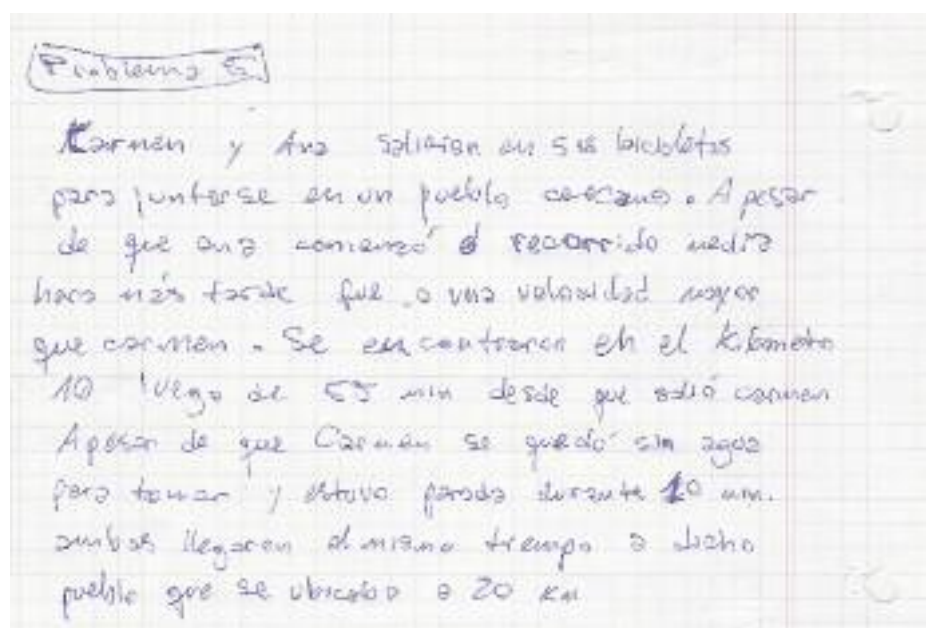 Problema 5
Carmen y Ana salieron en sus bicicletas
para juntarse en un pueblo cercano. Apesar
de que ana comenzó el recorrido media
hora más tarde fue a una velocidad mayor
que carmen. Se encontraron en el kilometo
10 luego de 55 min desde que salió carmen
Apesar de que Carmen se quedó sin agua
para tomar y estuvo parada durante 10 min.
ambas llegaron al mismo tiempo a dicho
pueblo que se ubicaba a 20 Km